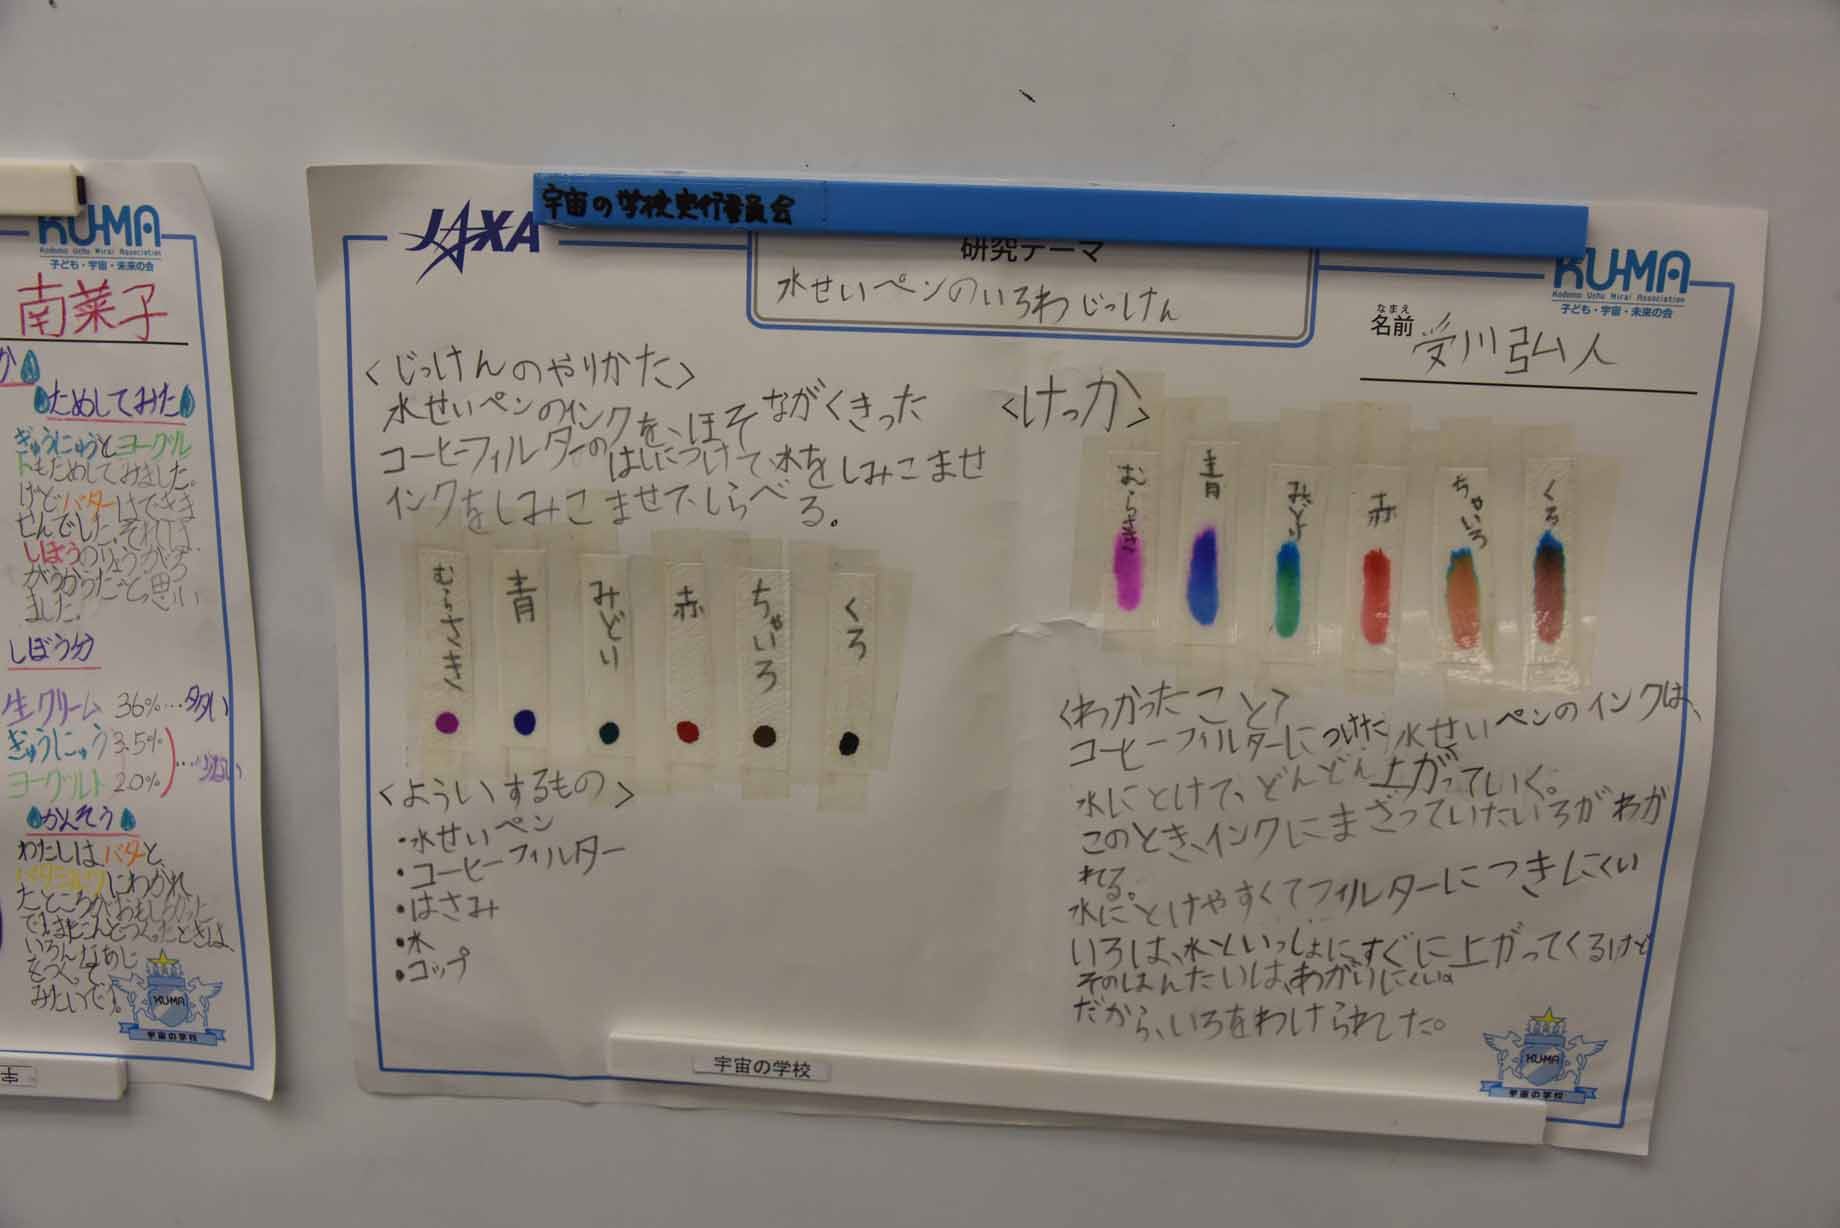 KU-MA
Kodomo Uchu Mirai Association
子ども・宇宙・未来の会
南菜子
か
ためしてみた
ぎゅうにゅうとヨーグル
トもためしてみました。
けどバターはできま
せんでした。それは
しぼうのりょうが
ました。
しぼう分
生クリーム 36%…多い
ぎゅうにゅう 3.5%
ヨーグルト 20%
かんそう
わたしはバターと、
バターミルクにわかれ
たところがおもしろかった
です。またこんどつくったときは、
いろんなあじ
をつくって
みたいです。
KU-MA
宇宙の学校
JAXA
宇宙の学校実行委員会
研究テーマ
水せいペンのいろわじっけん
KU-MA
Kodomo Uchu Mirai Association
子ども・宇宙・未来の会
なまえ
名前 受川弘人
<じっけんのやりかた>
水せいペンのインクを、ほそながくきった
コーヒーフィルターのはしにつけて、水をしみこませ
インクをしみこませて、しらべる。
むらさき
青
みどり
赤
ちゃいろ
くろ
<よういするもの>
・水せいペン
・コーヒーフィルター
・はさみ
・水
・コップ
<けっか>
むらさき
青
みどり
赤
ちゃいろ
くろ
<わかったこと>
コーヒーフィルターにつけた水せいペンのインクは、
水にとけて、どんどん上がっていく。
このとき、インクにまざっていたいろがわか
れてる。
水にとけやすくてフィルターにつきにくい
いろは、水といっしょに、すぐに上がってくるけど
そのはんたいは、あがりにくい。
だから、いろをわけられました。
宇宙の学校
KU-MA
宇宙の学校